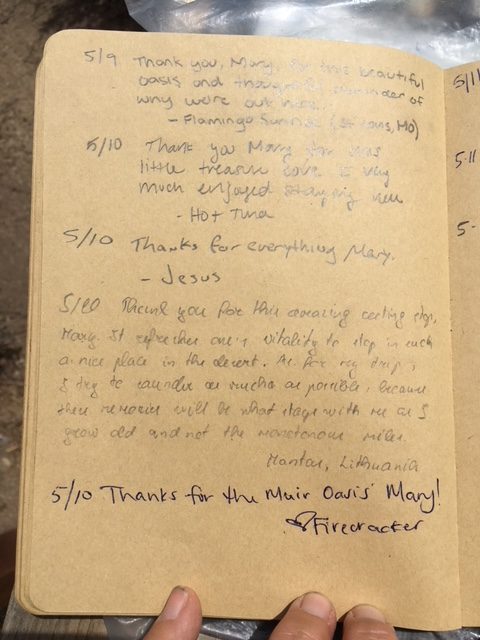 5/9 Thank you, Mary, for this beautiful
oasis and thoughtful reminder of
why we're out here.
- Flamingo Sunrise (St Louis, Mo)
5/10 Thank you Mary for this
little treasure cove. I very
much enjoyed stopping here
- Hot Tuna
5/10 Thanks for everything Mary.
- Jesus
5/10 Thank you for this amazing resting stop,
Mary. It refreshes one's vitality to stop in such
a nice place in the desert. As for my trip,
I try to wander as much as possible, because
these memories will be what stays with me as I
grow old and not the monotonous miles.
Lithuania
5/10 Thanks for the Muir Oasis' Mary!
Firecracker
5/11
5-11
5-